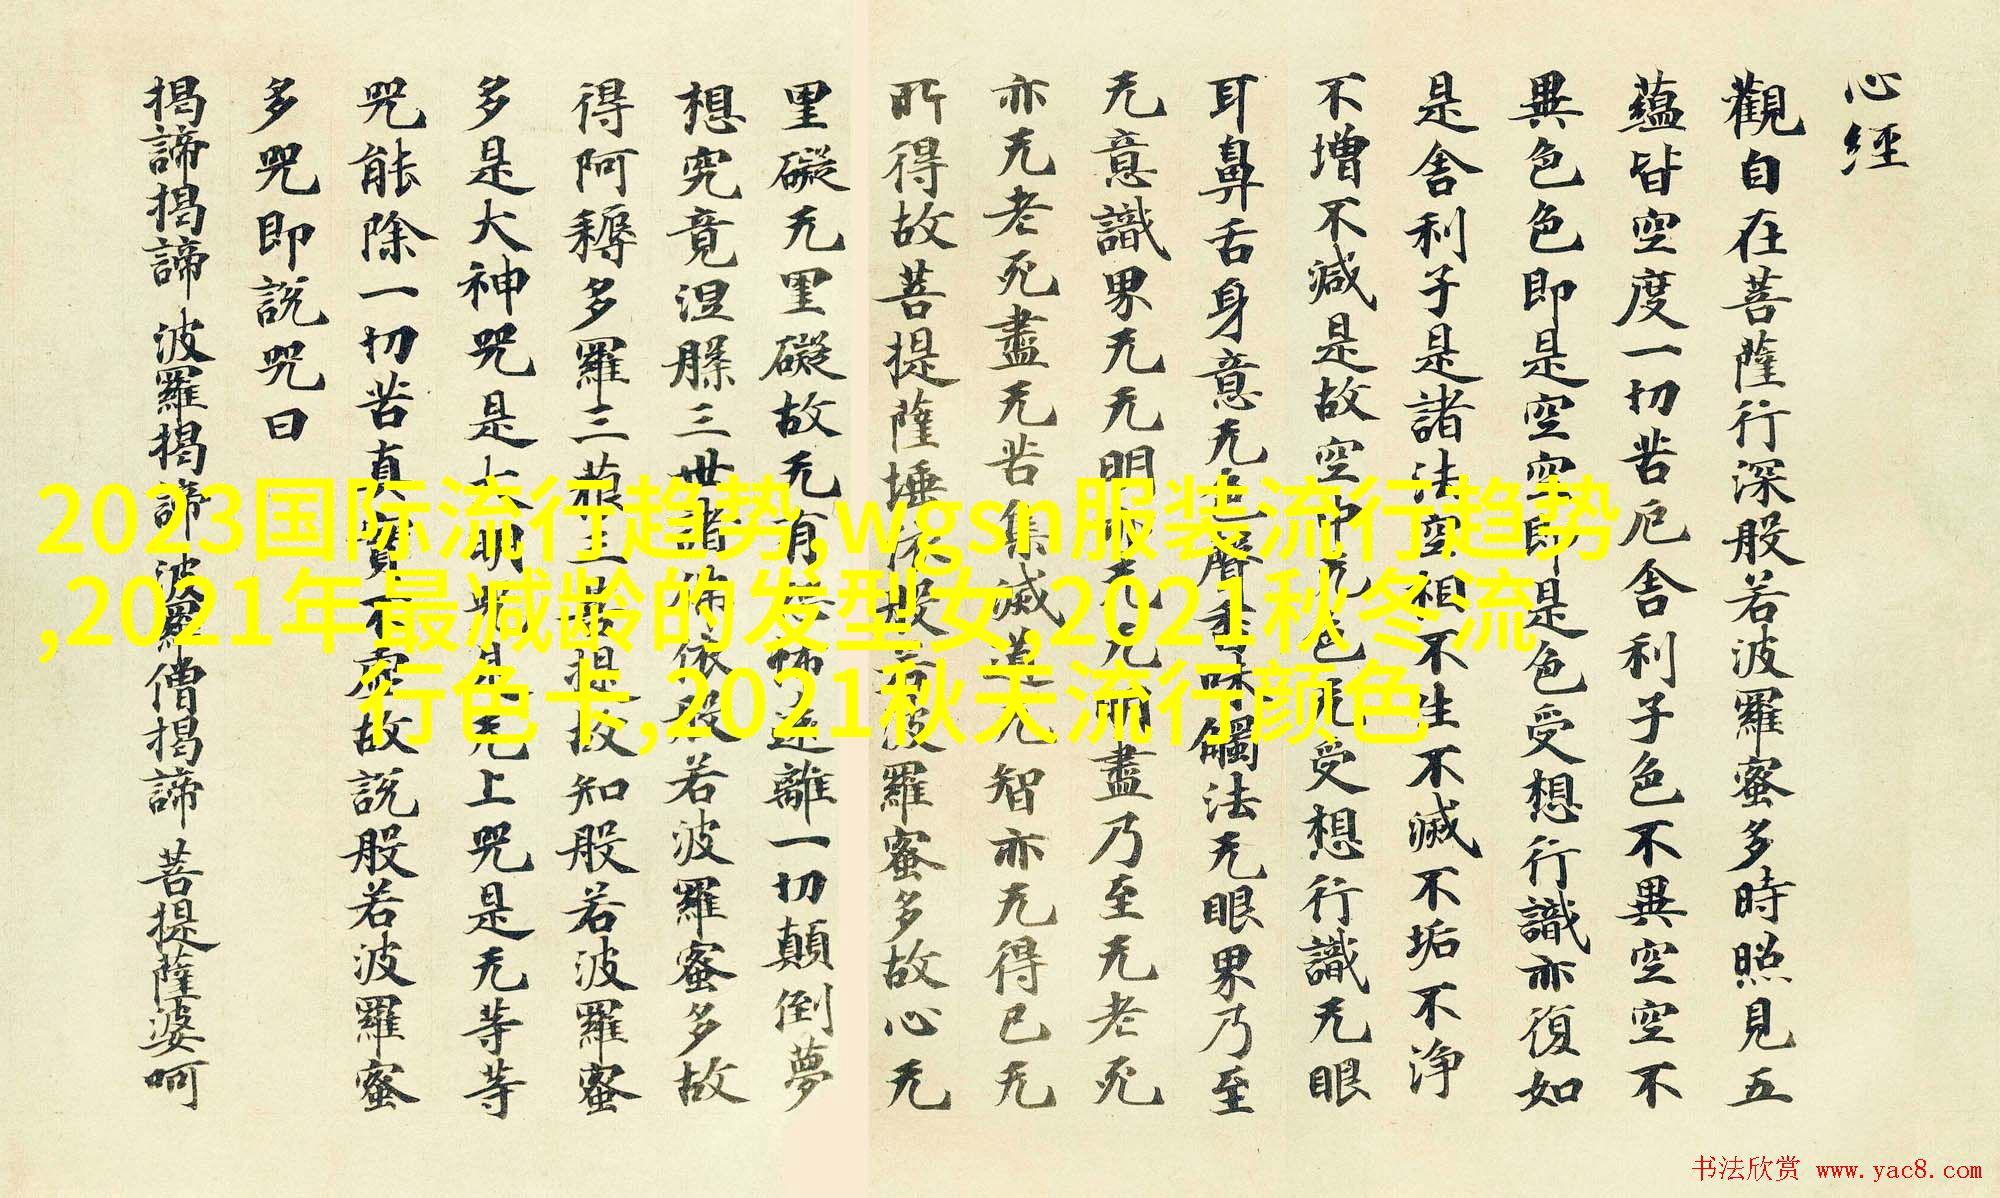 心經
觀自在菩薩行深般若波羅蜜多時照見五
蘊皆空度一切苦厄舍利子色不異空空不
異色色即是空空即是色受想行識亦復如
是舍利子是諸法空相不生不滅不垢不淨
不增不減是故空中无色无受想行識无眼
耳鼻舌身意无色聲香味觸法无眼界乃至
无意識界无无明亦无无明盡乃至无老死
亦无老死盡无苦集滅道无智亦无得已无
所得故菩提薩埵依般若波羅蜜多故心无
罣礙无罣礙故无有恐怖遠離一切顛倒夢
想究竟涅槃三世諸佛依般若波羅蜜多故
得阿耨多羅三藐三菩提故知般若波羅蜜
多是大神咒是大明咒是无上咒是无等等
咒能除一切苦真實不虛故說般若波羅蜜
多咒即說咒曰
揭諦揭諦 波羅揭諦 波羅僧揭諦 菩提薩婆呵
2023国际流行趋势,wgsn服装流行趋势
,2021年最减龄的发型女,2021秋冬流
行色卡,2021秋天流行颜色
书法欣赏 www.yac8.com